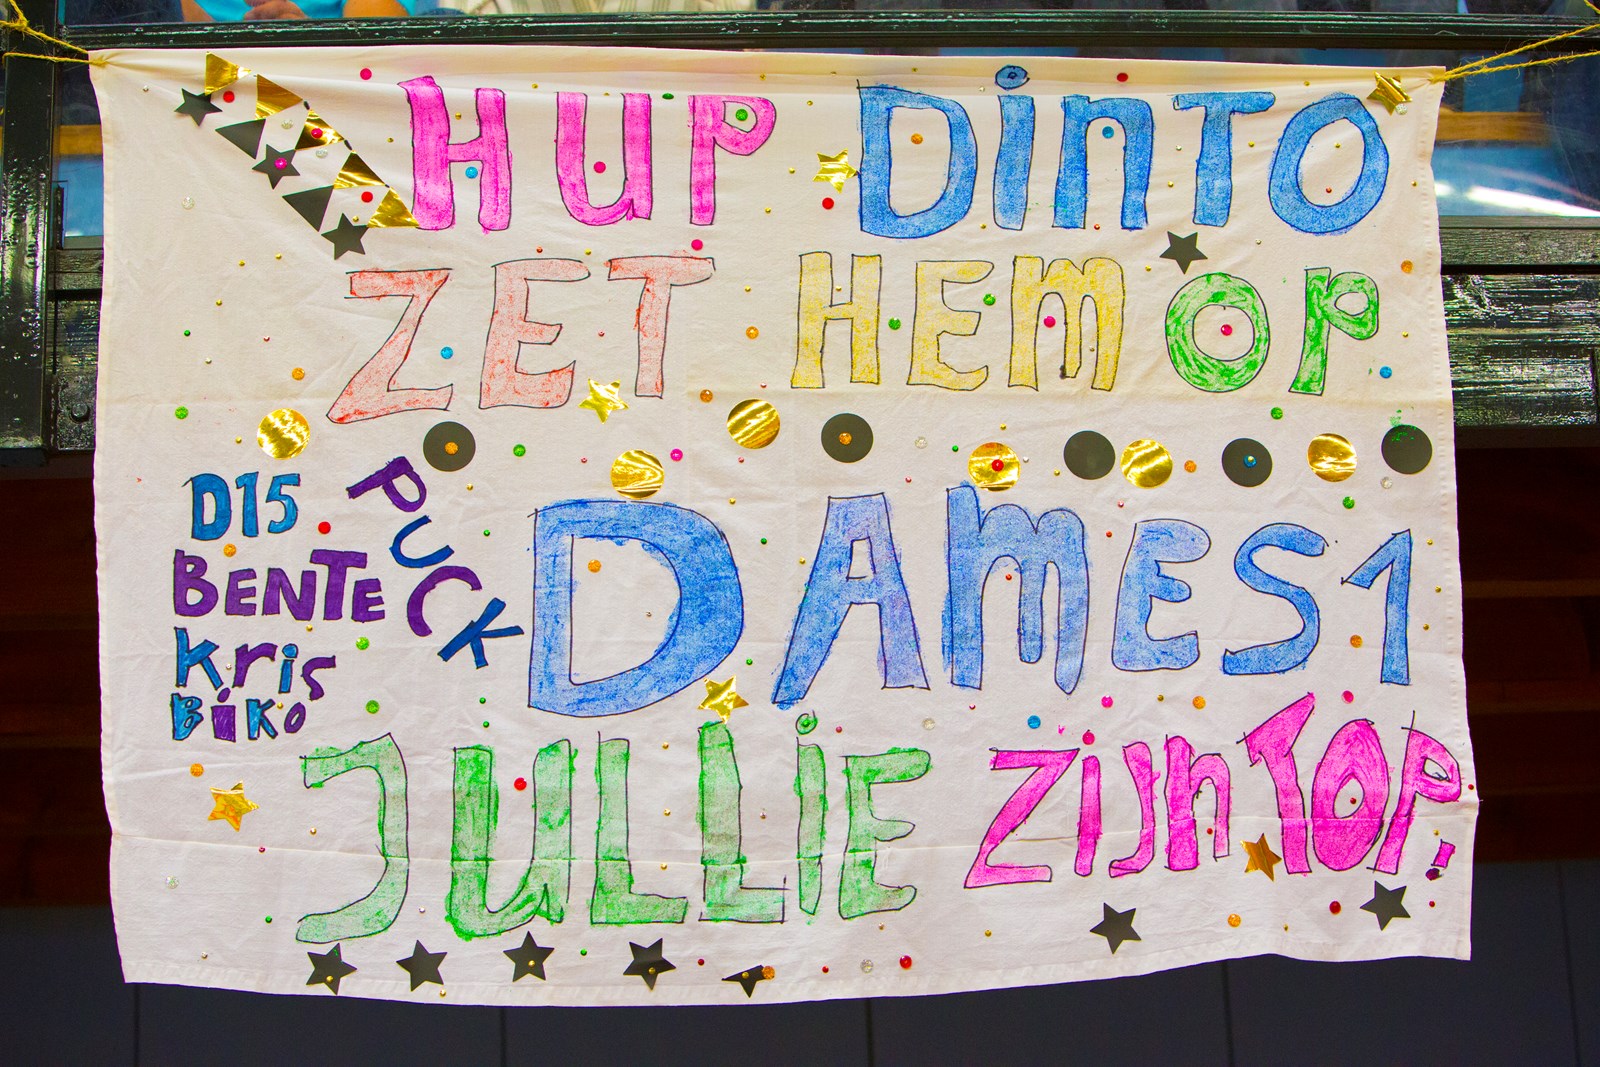 HUP DinTO
ZET HEM OP
D15
BENTE
Kris
BiKO
PUCK
DAMES1
JULLiE ZiJn TOP!